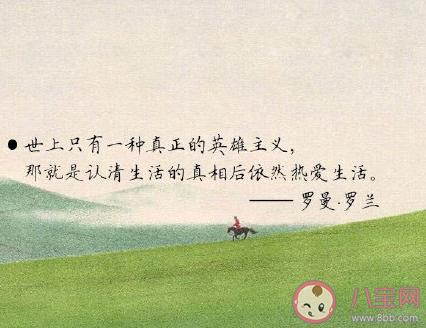 世上只有一种真正的英雄主义，
那就是认清生活的真相后依然热爱生活。
——罗曼·罗兰
八宝网
www.8bb.com